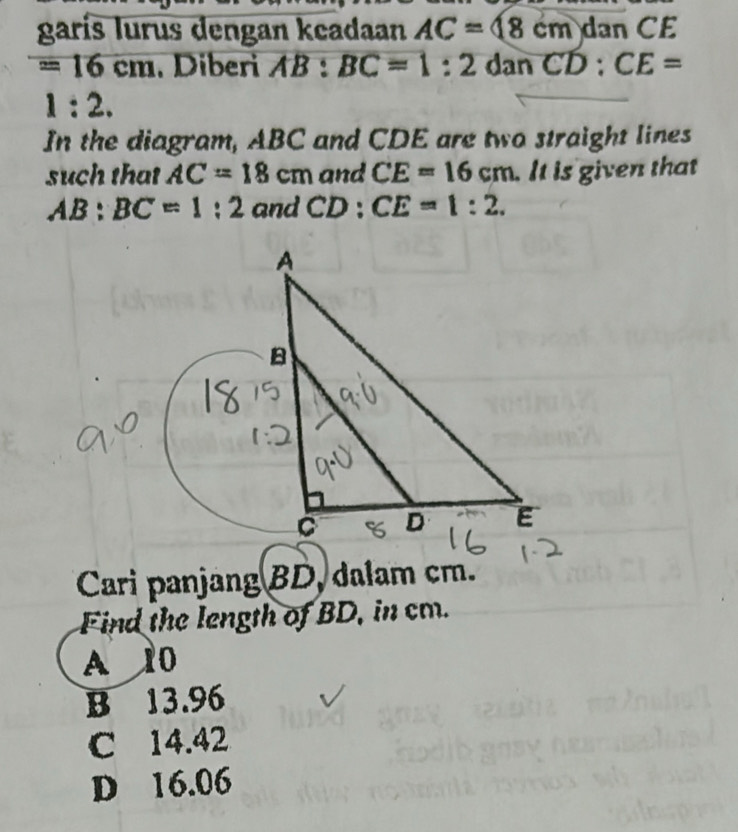 garis lurus dengan keadaan AC = 18 cm dan CE
= 16 cm. Diberi AB : BC = 1 : 2 dan CD : CE =
1 : 2.
In the diagram, ABC and CDE are two straight lines
such that AC = 18 cm and CE = 16 cm. It is given that
AB : BC = 1 : 2 and CD : CE = 1 : 2.
A
B
18
1:2
C
8
D
16
E
1:2
Cari panjang BD, dalam cm.
Find the length of BD, in cm.
A 10
B 13.96
C 14.42
D 16.06